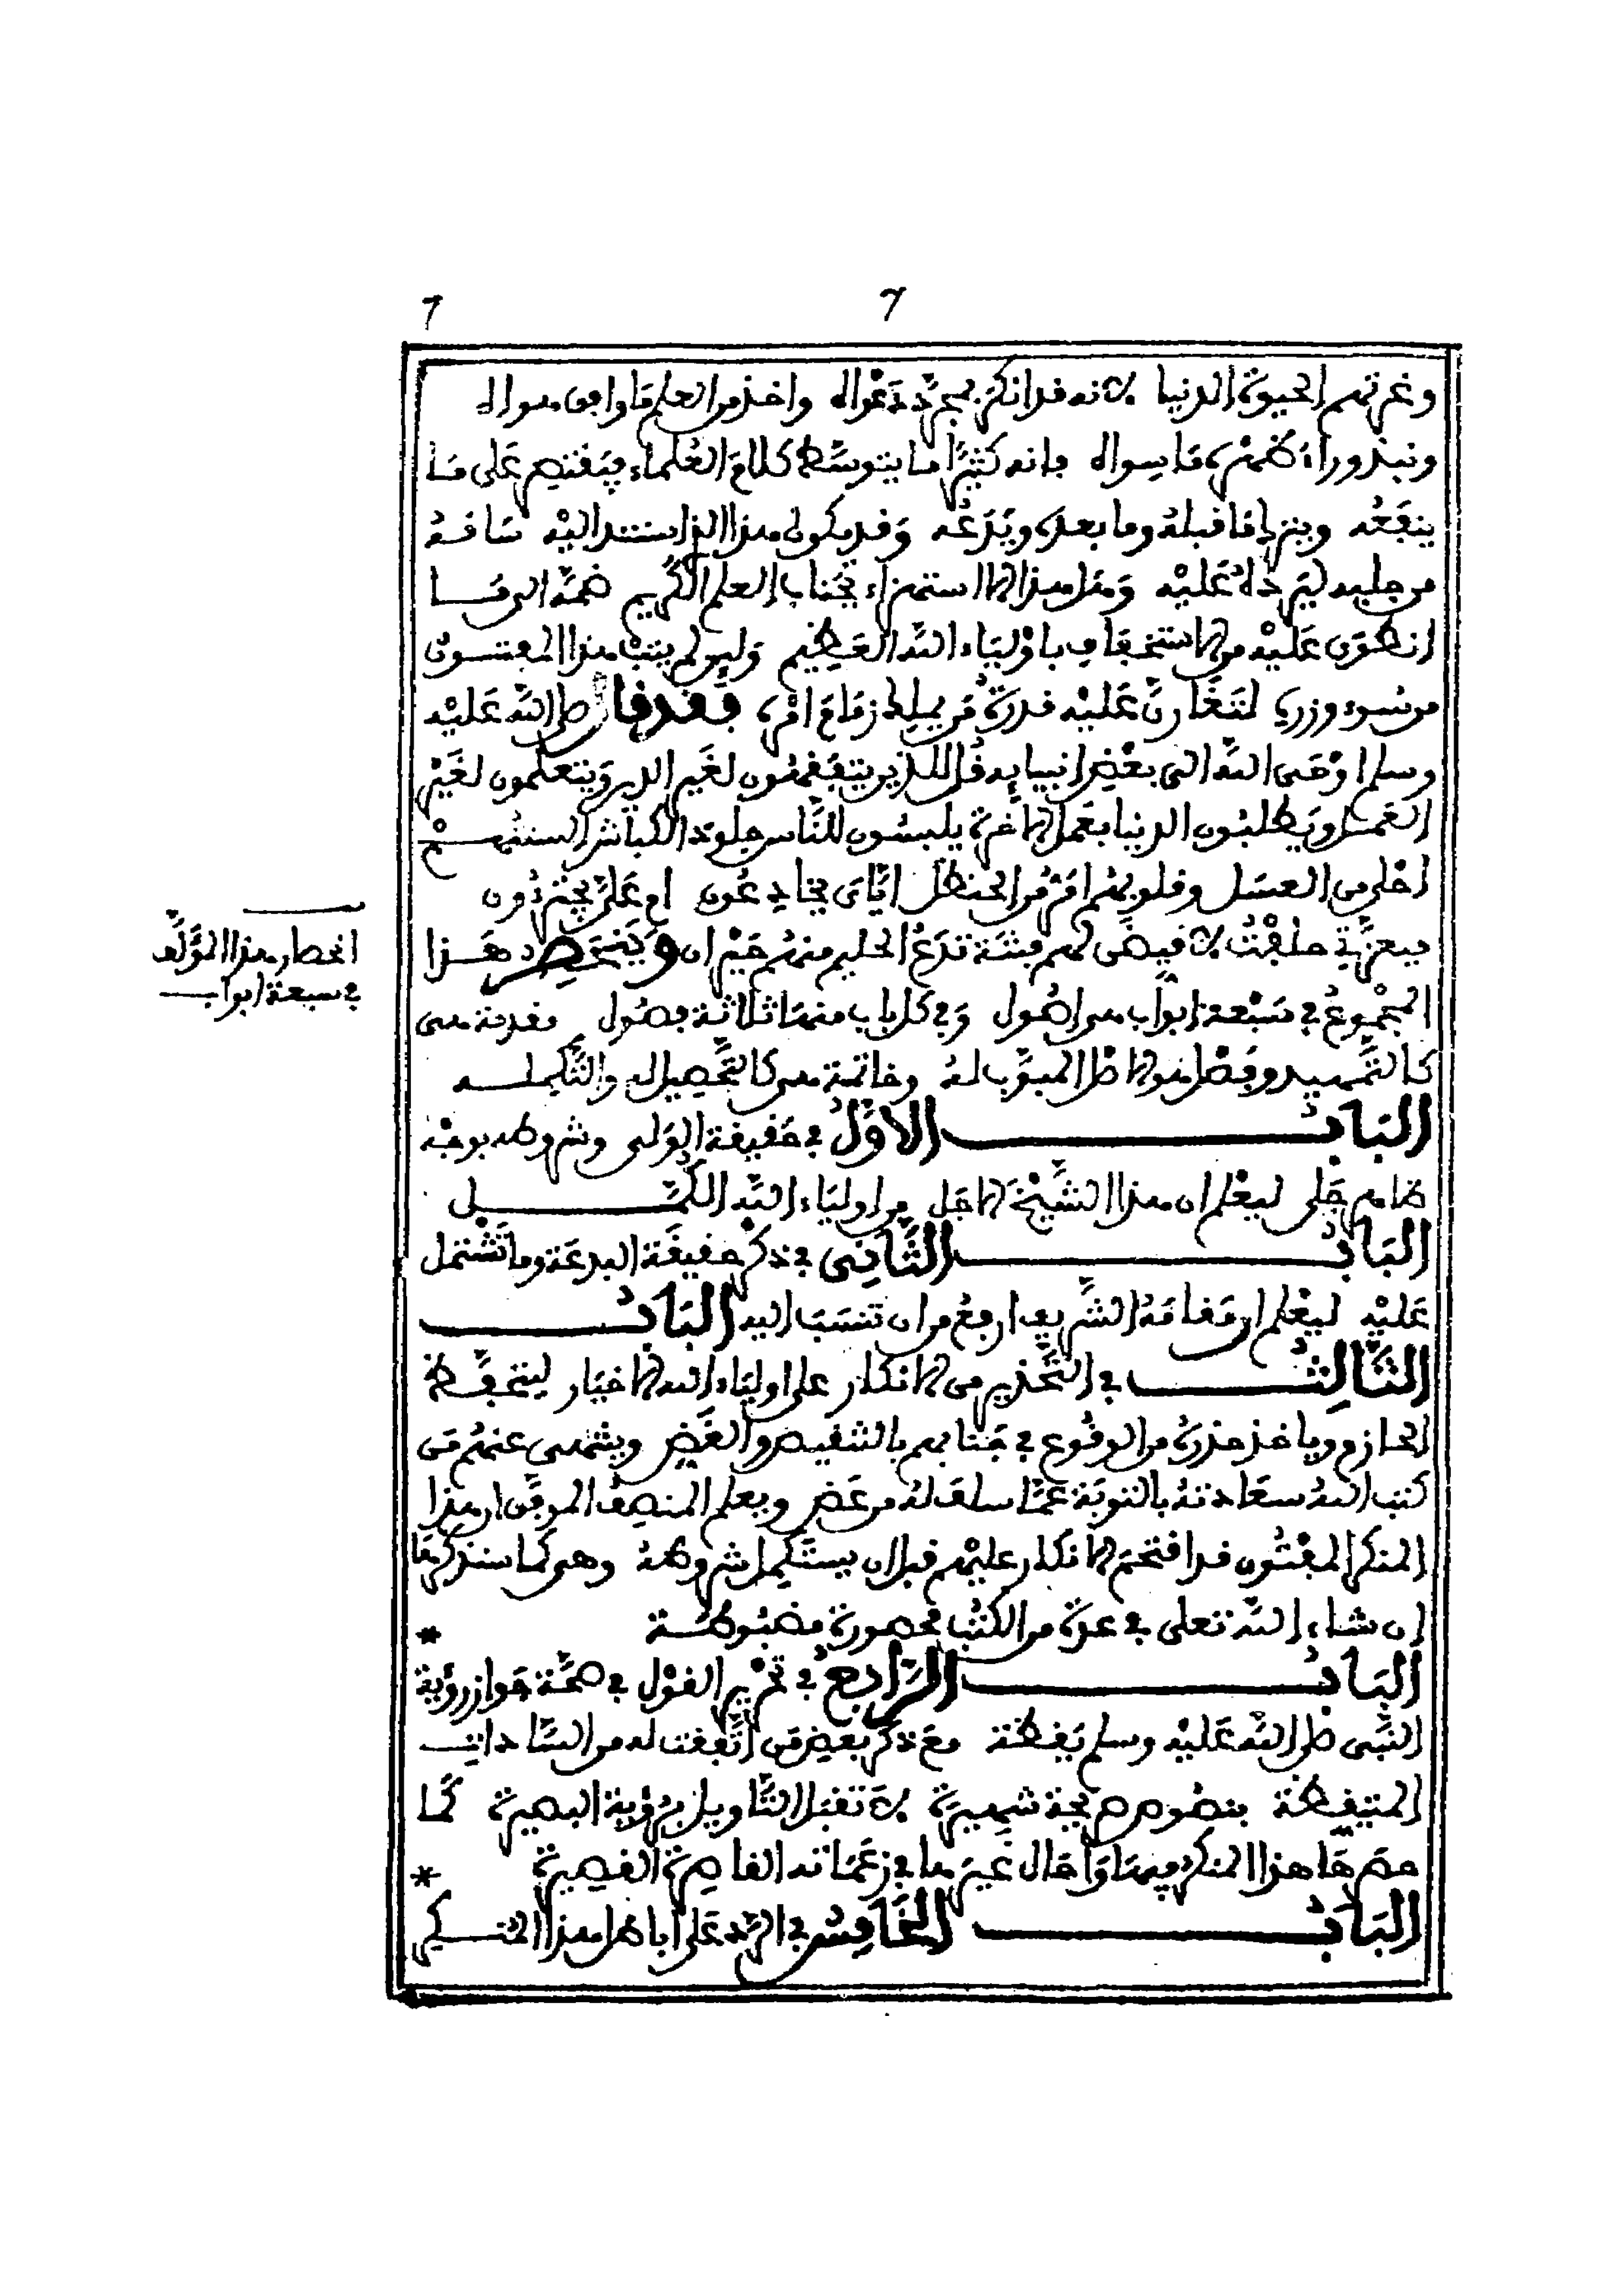 7
7
وغرتهم الحيوة الدنيا لانه قد انكر بمجرد دعواه واخذ من العلم ما وافق هواه
ونبذ وراء ظهره ما سواه فانه كثيرا ما يتوسط كلام العلماء فيقتصر على ما
ينفعه ويترك ما قبله وما بعده ويدعه وقد يكون هذا الذي استند اليه ساقه
من جلبه ليرد له عليه وهل هذا الا استهزاء بجناب العلم الكريم ضمه الى ما
انطوى عليه من الاستخفاف باولياء الله العظيم ولئن لم يتب هذا المفتون
من سوء وزره لتغارن عليه قدرة من بيده زمام امره فقد قال صلى الله عليه
وسلم اوحى الله الى بعض انبيايه قل للذين يتفقهون لغير الدين ويتعلمون لغير
العمل ويطلبون الدنيا بعمل الاخرة يلبسون للناس جلود الكباش السنتهم
احلى من العسل وقلوبهم امر من الحنظل اياي يخادعون ام علي يجترءون
فبعزتي حلفت لاقيضن لهم فتنة تدع الحليم منهم حيران وينحصر هذا
المجموع في سبعة ابواب هي اصول وفي كل باب منها ثلاثة فصول مقدمة هي
كالتمهيد وفصل هو الاصل المبوب له وخاتمة هي كالتحصيل له والتكملـه
البـاب الاول في حقيقة الولي وشروطه بوجه
ظاهر جلي ليعلم ان هذا الشيخ الاجل من اولياء الله الكمـل
البـاب الثاني في ذكر حقيقة البدعة وما تشتمل
عليه ليعلم ان مقامه الشريف ارفع من ان تنسب اليه البـاب
الثالث في التحذير من الانكار على اولياء الله الاخيار ليتحفظ
الحازم وياخذ حذره من الوقوع في جنابهم بالتنقيص والغض وينتهى عنهم من
كتب الله سعادته بالتوبة عما سلف له من غض ويعلم المنصف الموفق ان هذا
المنكر المفتون قد اقتحم الانكار عليهم قبل ان يستكمل شروطه وهي كما سنذكرها
ان شاء الله تعلى في عدة من الكتب محصورة مضبوطـة *
البـاب الرابع في تحرير القول في صحة جواز رؤية
النبي صلى الله عليه وسلم يقظة مع ذكر بعض من اتفقت له من السادات
المتيقظة بنصوص صحيحة شهيرة لا تقبل التاويل برؤية البصيرة كما
حصرها هذا المنكر فيها واحال غيرها في زعماته الفاصرة القصيرة *
البـاب الخامس في الرد على اباطل هذا المنـكر
انحصار هذا المؤلف
في سبعة ابواب